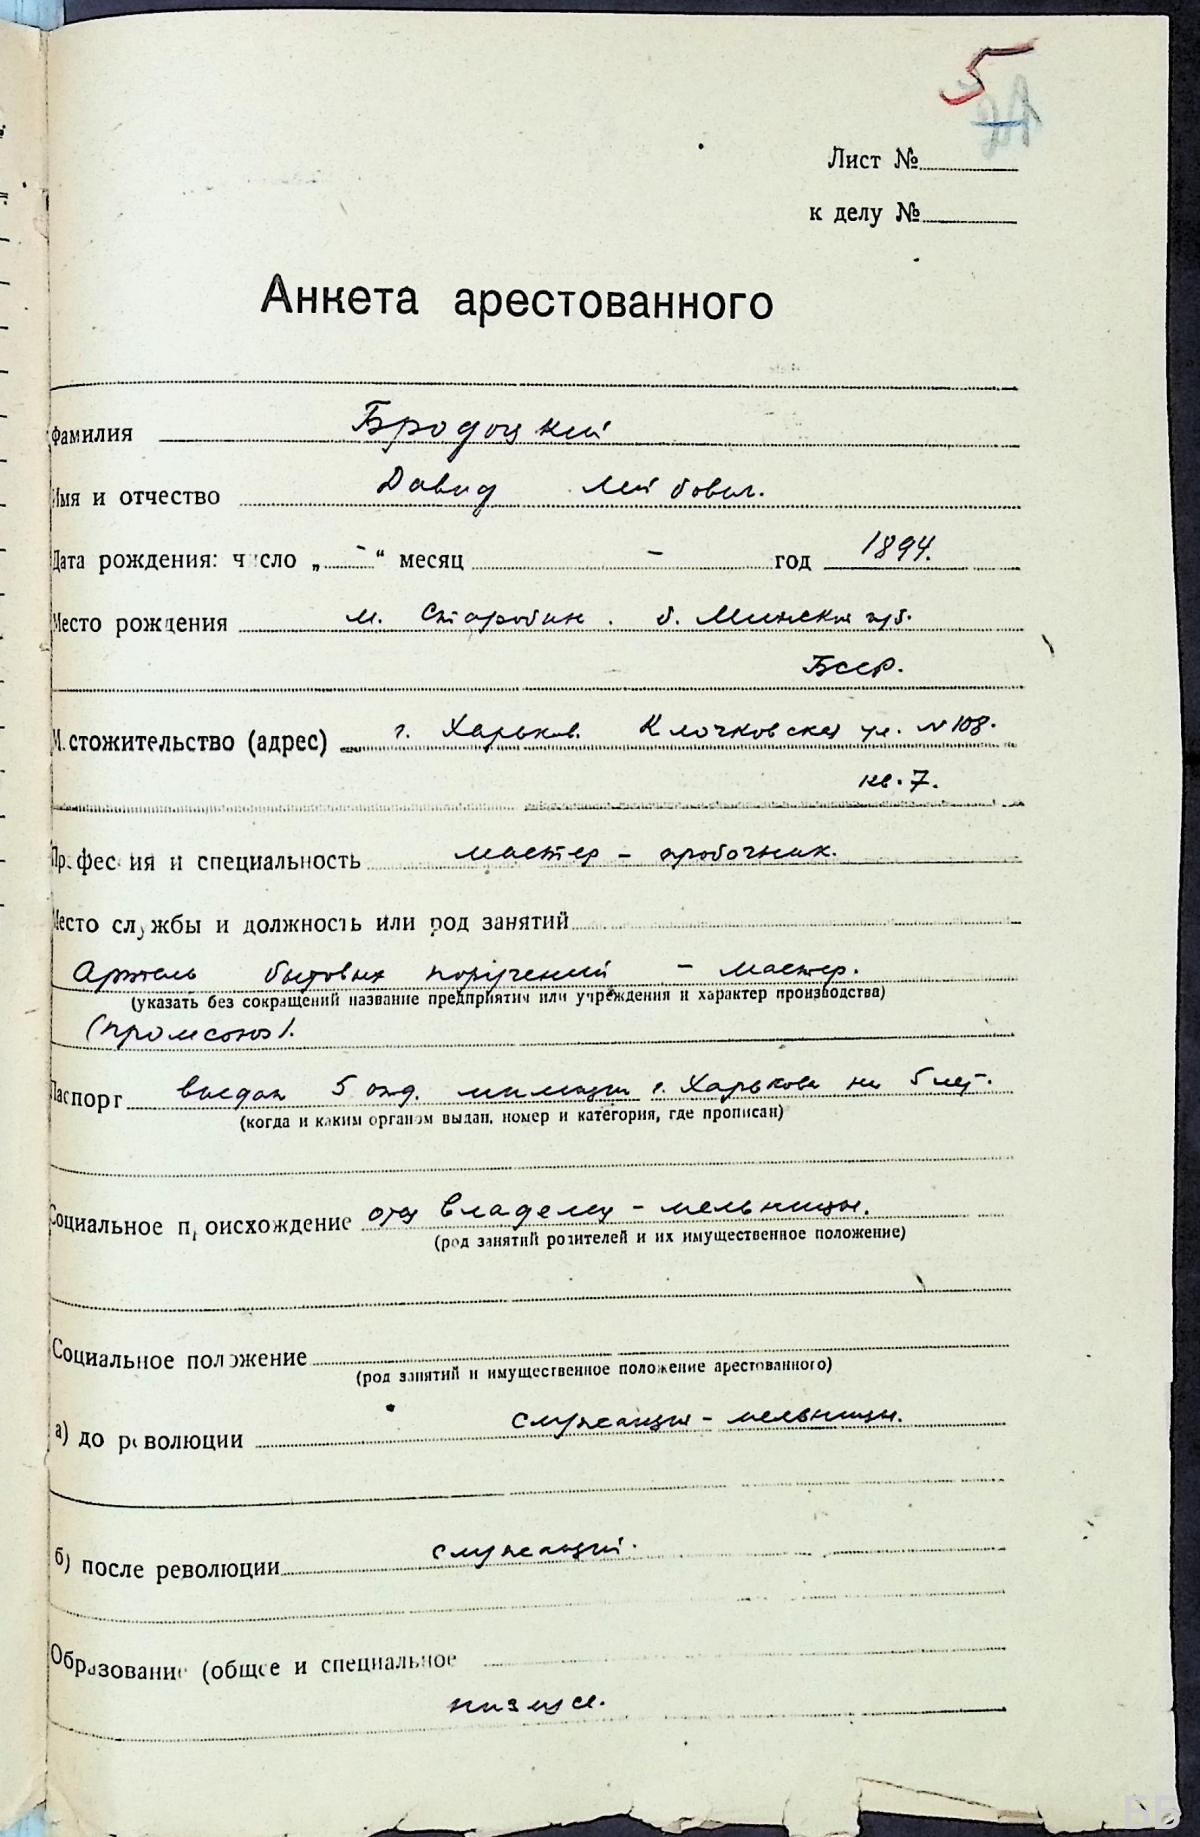 5
Лист №
к делу №
Анкета арестованного
Фамилия Бродоцкий
Имя и отчество Давид Лейбович.
Дата рождения: число „ - “ месяц - год 1894.
Место рождения м. Старобин. б. Минской губ.
БССР.
Местожительство (адрес) г. Харьков. Клочковская ул. № 108.
кв. 7.
Профессия и специальность мастер - пробочник.
Место службы и должность или род занятий
Артель бытовых поручений - мастер.
(указать без сокращений название предприятия или учреждения и характер производства)
(промсоюз).
Паспорт выдан 5 отд. милиции г. Харькова на 5 лет.
(когда и каким органом выдан, номер и категория, где прописан)
Социальное происхождение отец владелец - мельницы.
(род занятий родителей и их имущественное положение)
Социальное положение
(род занятий и имущественное положение арестованного)
а) до революции служащий - мельницы.
б) после революции служащий.
Образование (общее и специальное
низшее.
ББ